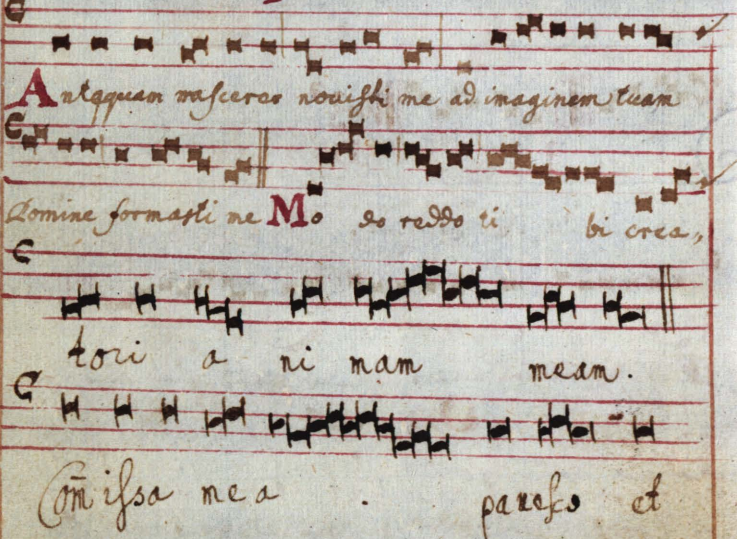 Antaquam nascerer novisti me ad imaginem tuam
Domine formasti me Mo do reddo ti bi crea,,
tori a ni mam meam.
Com̄issa mea . pavesco et